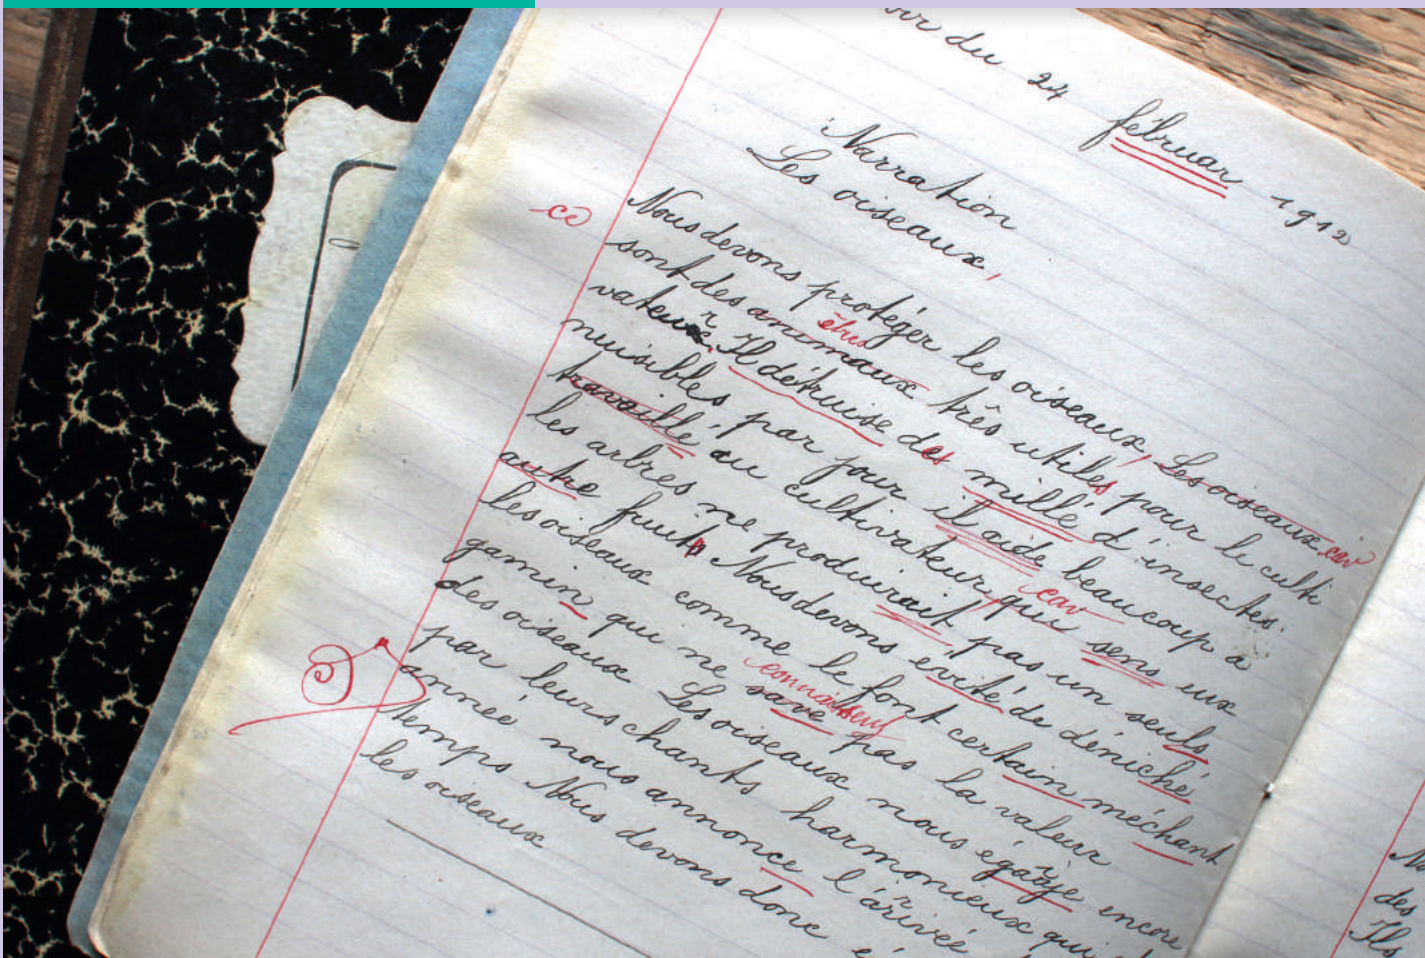 du 24 februar 1912
Narration
Les oiseaux,
ce
Nous devons protéger les oiseaux, Les oiseaux car
sont des animaux êtres très utiles pour le culti
vateur. Il détruise des millé d'insectes
nuisibles, par jour il aide beaucoup a
travaille au cultivateur qui car sens eux
les arbres ne produirait pas un seuls
autre fruit Nous devons evité de déniché
les oiseaux comme le font certain méchant
gamin qui ne save connaissent pas la valeur
des oiseaux Les oiseaux nous égaye encore
par leurs chants harmonieux qui
année nous annonce l'arrivée
temps Nous devons donc
les oiseaux
des
Ils